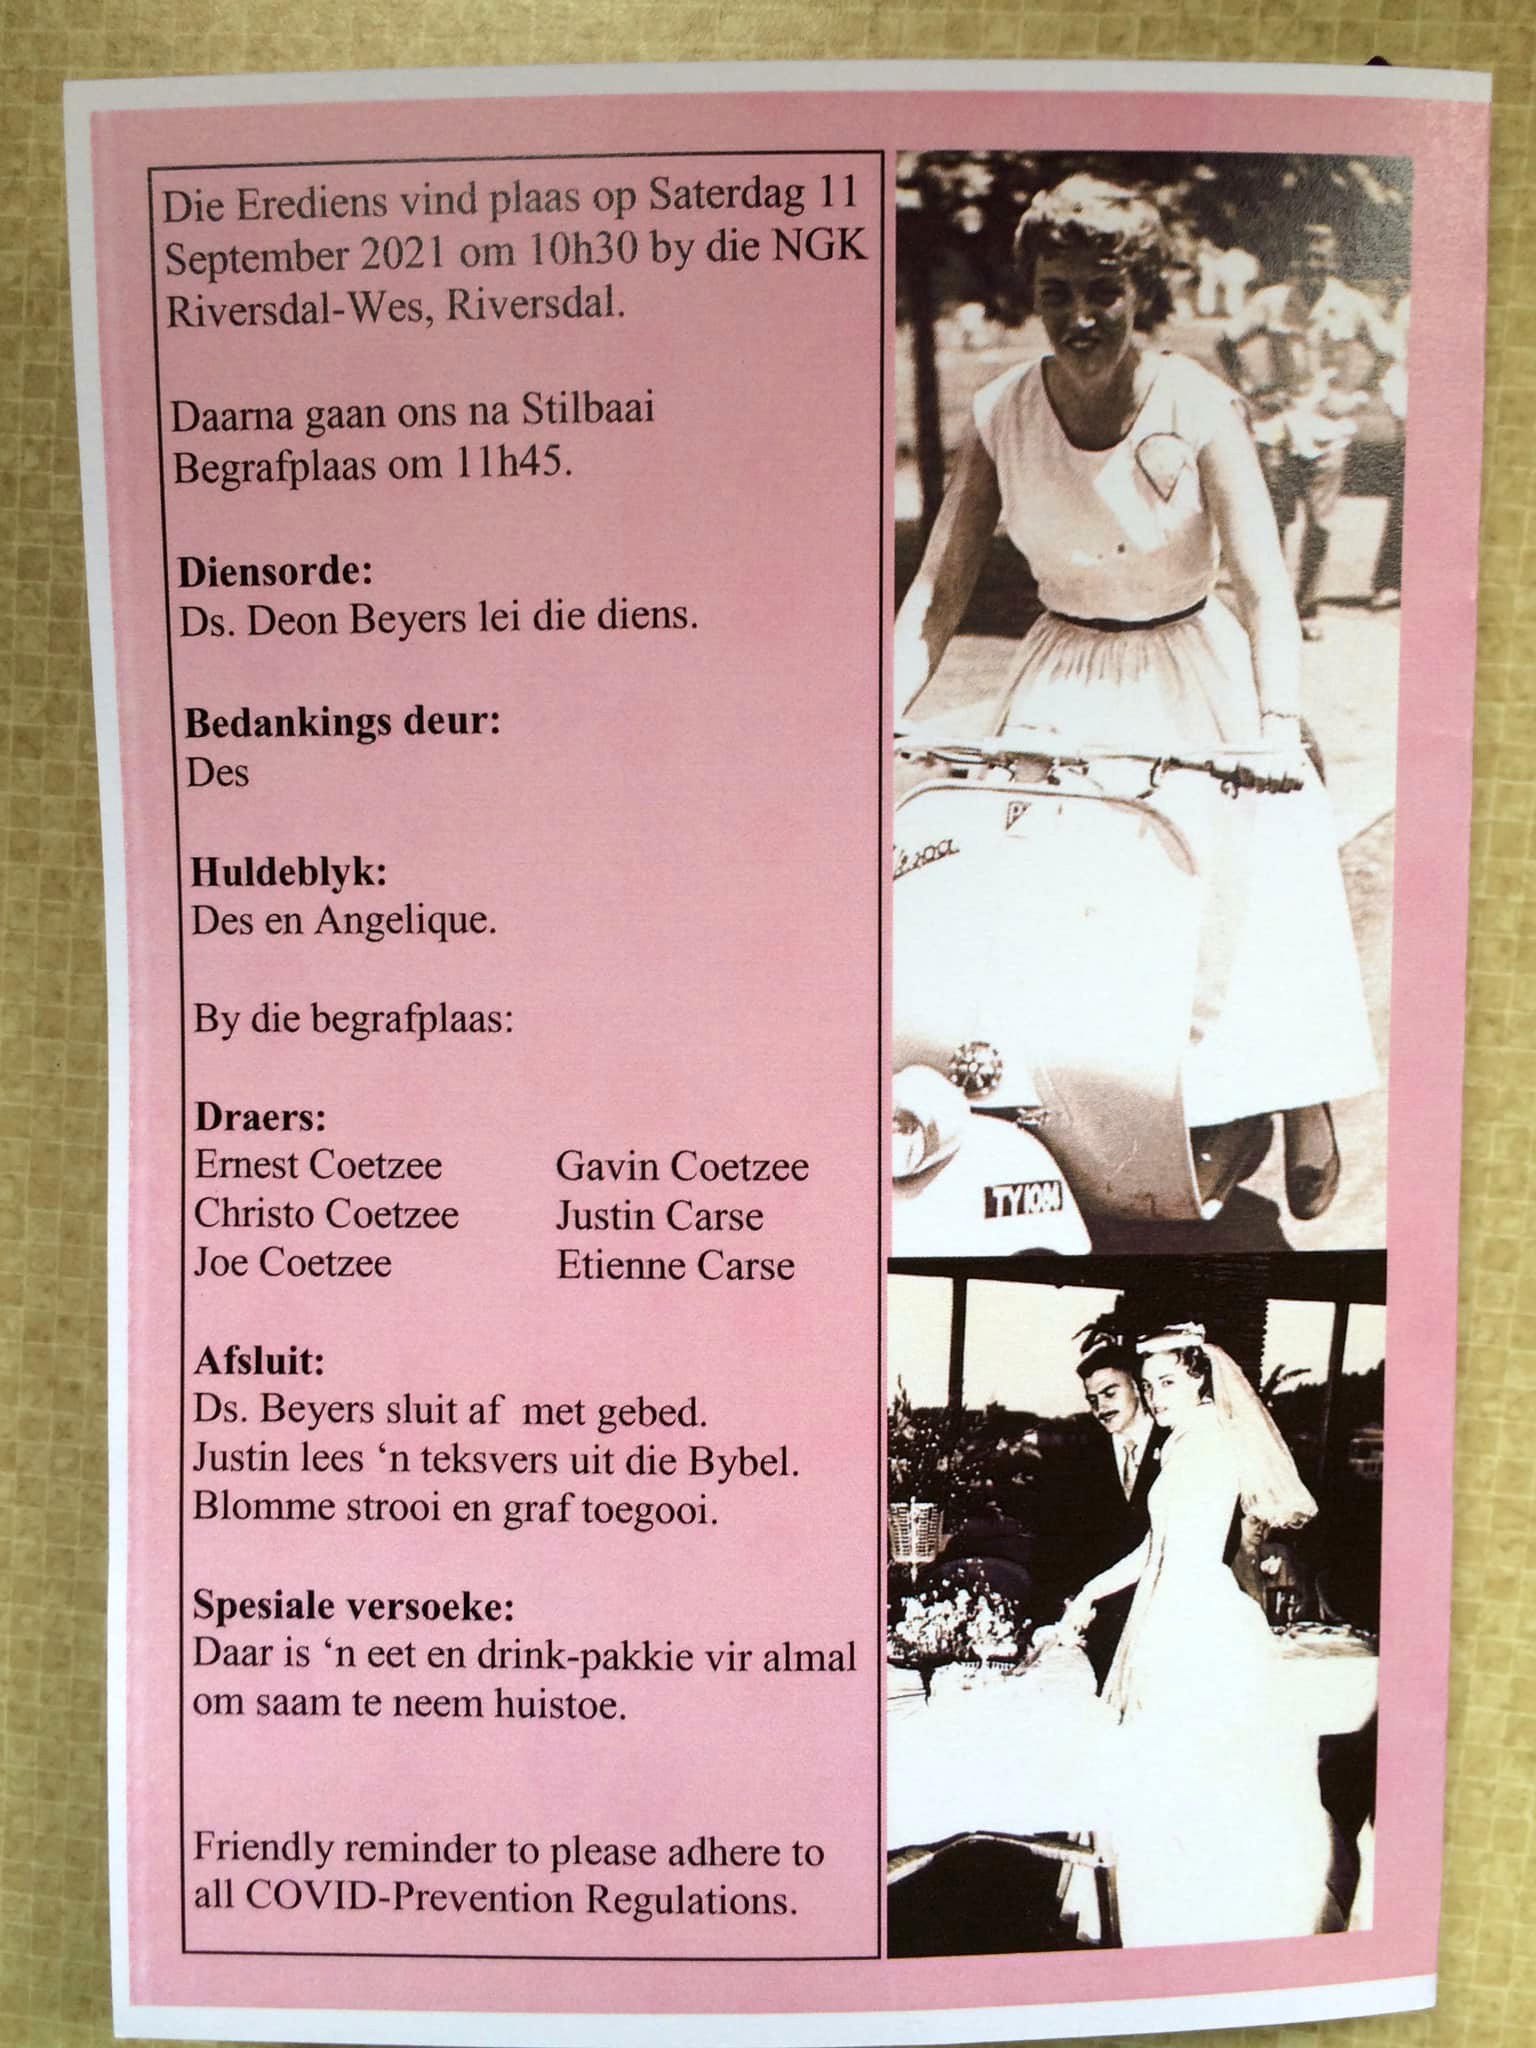 Die Erediens vind plaas op Saterdag 11
September 2021 om 10h30 by die NGK
Riversdal-Wes, Riversdal.
Daarna gaan ons na Stilbaai
Begrafplaas om 11h45.
Diensorde:
Ds. Deon Beyers lei die diens.
Bedankings deur:
Des
Huldeblyk:
Des en Angelique.
By die begrafplaas:
Draers:
Ernest Coetzee Gavin Coetzee
Christo Coetzee Justin Carse
Joe Coetzee Etienne Carse
Afsluit:
Ds. Beyers sluit af met gebed.
Justin lees ‘n teksvers uit die Bybel.
Blomme strooi en graf toegooi.
Spesiale versoeke:
Daar is ‘n eet en drink-pakkie vir almal
om saam te neem huistoe.
Friendly reminder to please adhere to
all COVID-Prevention Regulations.